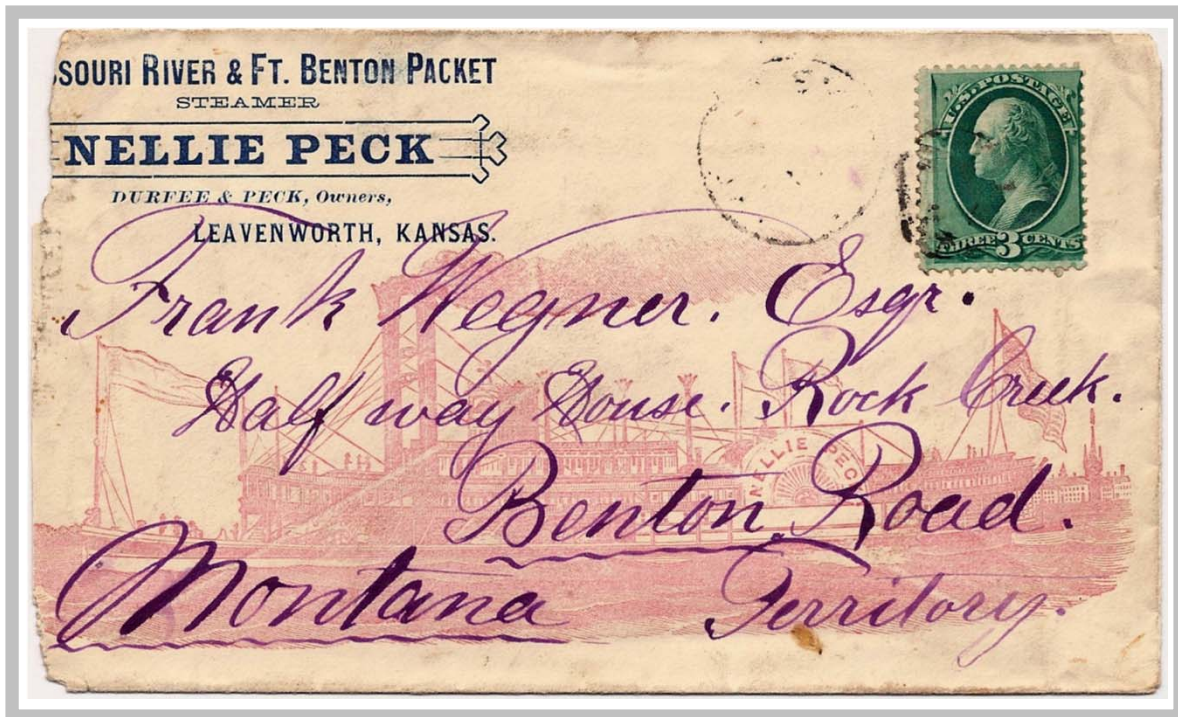 SOURI RIVER & FT. BENTON PACKET
STEAMER
NELLIE PECK
DURFEE & PECK, Owners,
LEAVENWORTH, KANSAS.
U.S. POSTAGE
THREE 3 CENTS
Frank Wegner. Esqr.
Half way House. Rock Creek.
NELLIE PECK
Benton Road.
Montana Territory.